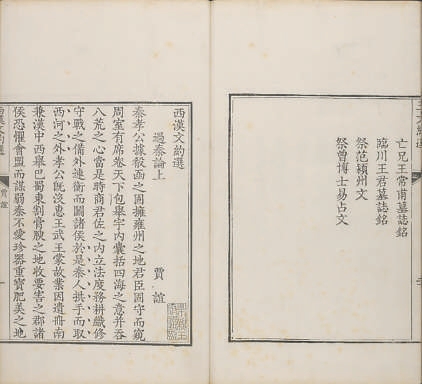 亡兄王常甫墓誌銘
臨川王君墓誌銘
祭范潁州文
祭曾博士易占文
西漢文約選
過秦論上
賈誼
秦孝公據殽函之固擁雍州之地君臣固守而窺
周室有席卷天下包舉宇內囊括四海之意并吞
八荒之心當是時商君佐之內立法度務耕織修
守戰之備外連衡而鬭諸侯於是秦人拱手而取
西河之外孝公既沒惠王武王蒙故業因遺冊南
兼漢中西舉巴蜀東割膏腴之地收要害之郡諸
侯恐懼會盟而謀弱秦不愛珍器重寶肥美之地
賈誼